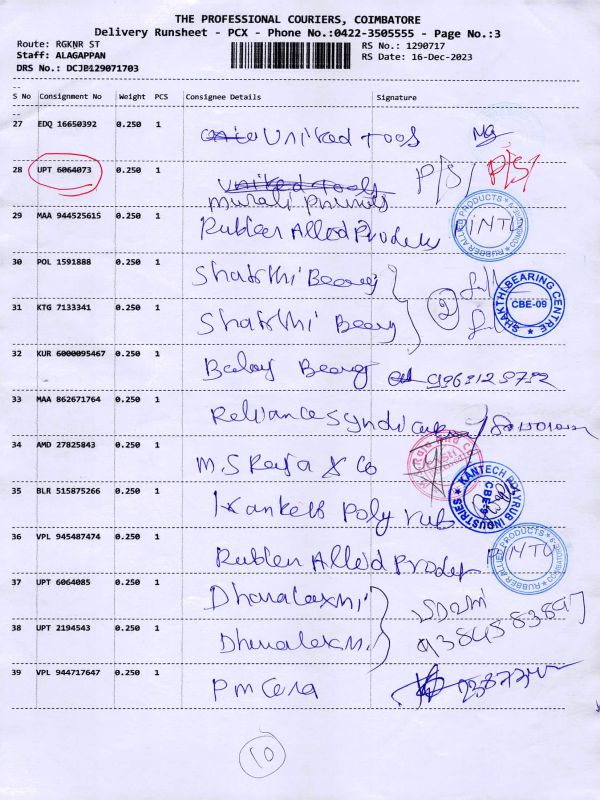 THE PROFESSIONAL COURIERS, COIMBATORE
Delivery Runsheet - PCX - Phone No.:0422-3505555 - Page No.:3
Route: RGKNR ST
RS No.: 1290717
Staff: ALAGAPPAN
RS Date: 16-Dec-2023
DRS No.: DCJB129071703
S No Consignment No Weight PCS Consignee Details Signature
27 EDQ 16650392 0.250 1 United Tools
28 UPT 6064073 0.250 1 United Tools P/S/ P/S/
murali
29 MAA 944525615 0.250 1 Rubber Allied Prodets PINTU
RUBBER ALLIED PRODUCTS
30 POL 1591888 0.250 1 Shakthi Bearig
2
SHAKTHI BEARING CENTRE
CBE-09
31 KTG 7133341 0.250 1 Shakthi Bearg
32 KUR 6000095467 0.250 1 Balaj Bearig
33 MAA 862671764 0.250 1 Reliance Syndicate
34 AMD 27825843 0.250 1 M.S Raja & Co
35 BLR 515875266 0.250 1 Kantech Poly rub
KANTECH POLYRUB INDUSTRIES
CBE-9
36 VPL 945487474 0.250 1 Rubber Allied Prodets PINTU
RUBBER ALLIED PRODUCTS
37 UPT 6064085 0.250 1 Dhanalaxmi
38 UPT 2194543 0.250 1 Dhanalaxmi
39 VPL 944717647 0.250 1 Pm Cera
10